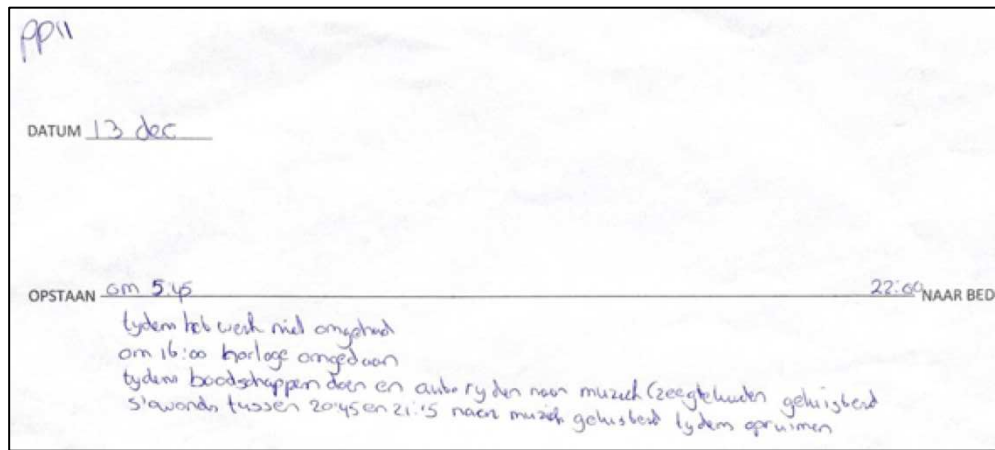 pp11
DATUM 13 dec
OPSTAAN om 5:45 22:00 NAAR BED
tydens het werk niet omgehad
om 16:00 horloge omgedaan
tydens boodschappen doen en auto ryden naar muziek (zeegeluiden geluisterd
s'avonds tussen 20:45 en 21:15 naar muziek geluisterd tydens opruimen